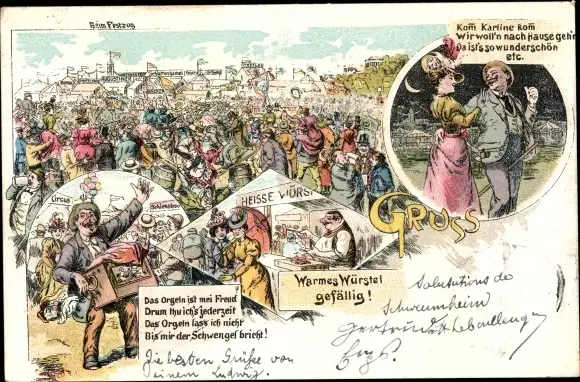 Beim Festzug
Kom̄ Karline kom̄
Wir woll'n nach Hause geh'n
Da ist's so wunderschön
etc.
Circus
HEISSE WÜRST
GRUSS
Warmes Würstel
gefällig!
Das Orgeln ist mei Freud
Drum thu ich's jederzeit
Das Orgeln lass ich nicht
Bis mir der Schwengel bricht!
Salutations de
Schweinheim
Gertrude
Die besten Grüße von
Deinem Ludwig.